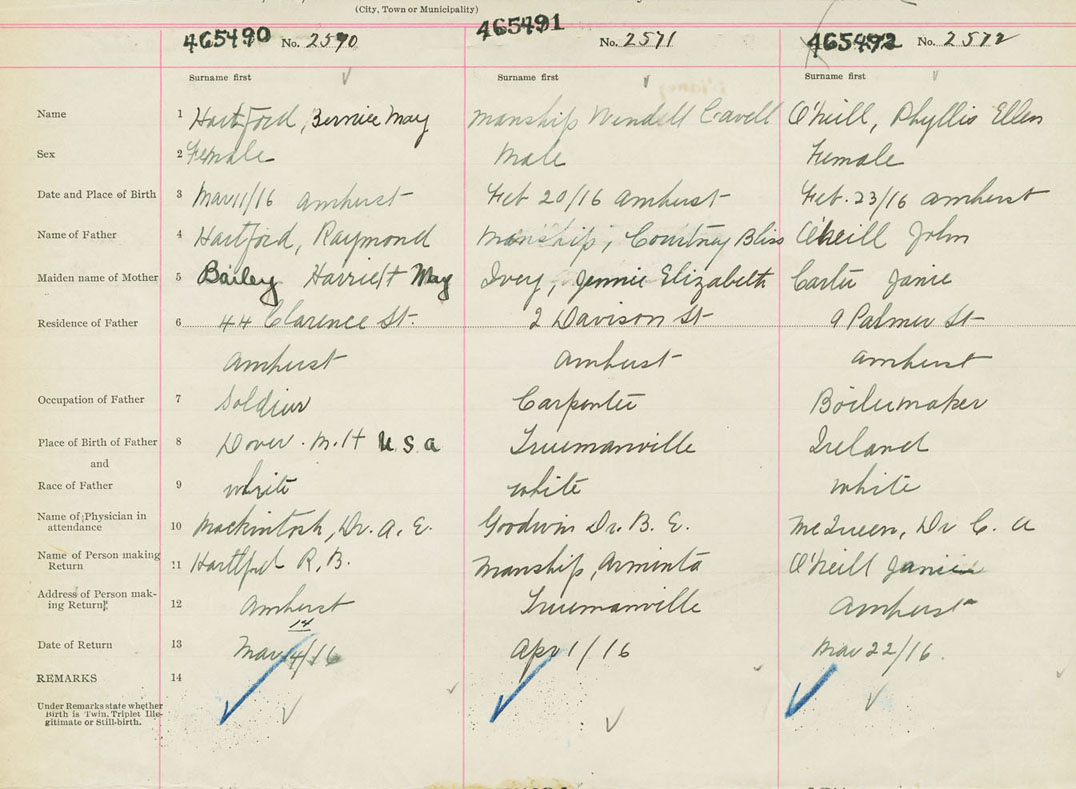 (City, Town or Municipality)
465490 No. 2570
465491 No. 2571
465492 No. 2572
Surname first
Surname first
Surname first
Name 1 Hartford, Bernice May
Manship Windell Cavell
O'Neill, Phyllis Ellen
Sex 2 Female
Male
Female
Date and Place of Birth 3 Mar 11/16 Amherst
Feb 20/16 Amherst
Feb. 23/16 Amherst
Name of Father 4 Hartford, Raymond
Manship, Courtney Bliss
O'Neill John
Maiden name of Mother 5 Bailey Harriett May
Ivery, Jennie Elizabeth
Carter Janie
Residence of Father 6 44 Clarence St.
2 Davison St
9 Palmer St
Amherst
Amherst
Amherst
Occupation of Father 7 Soldier
Carpenter
Boilermaker
Place of Birth of Father 8 Dover. N.H U.S.A
Truemanville
Ireland
and
Race of Father 9 white
white
white
Name of Physician in
attendance 10 Mackintosh, Dr. A. E.
Goodwin Dr. B. E.
McQueen, Dr C. A
Name of Person making
Return 11 Hartford R. B.
Manship, Arminta
O'Neill Janie
Address of Person mak-
ing Return 12 Amherst
Truemanville
Amherst
14
Date of Return 13 Mar 14/16
Apr 1/16
Mar 22/16.
REMARKS 14
Under Remarks state whether
Birth is Twin, Triplet Ille-
gitimate or Still-birth.